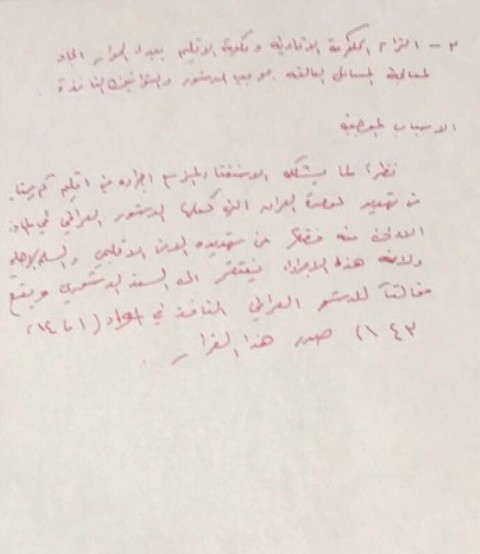 ٣- التزام الحكومة الاتحادية وحكومة الاقليم بمبدأ الحوار الجاد
لمعالجة المسائل العالقة بموجب الدستور والقوانين النافذة
الاسباب الموجبة
نظراً لما يشكله الاستفتاء المزمع اجراءه في اقليم كردستان
من تهديد لوحدة العراق التي كفلها الدستور العراقي في المادة
الاولى منه فضلاً عن تهديده الامن الاقليمي والسلم الاهلي
ولانه هذا الاجراء يفتقر الى السند الدستوري ويقع
مخالفاً للدستور العراقي النافذ في المواد (١
١٤٣) صدر هذا القرار